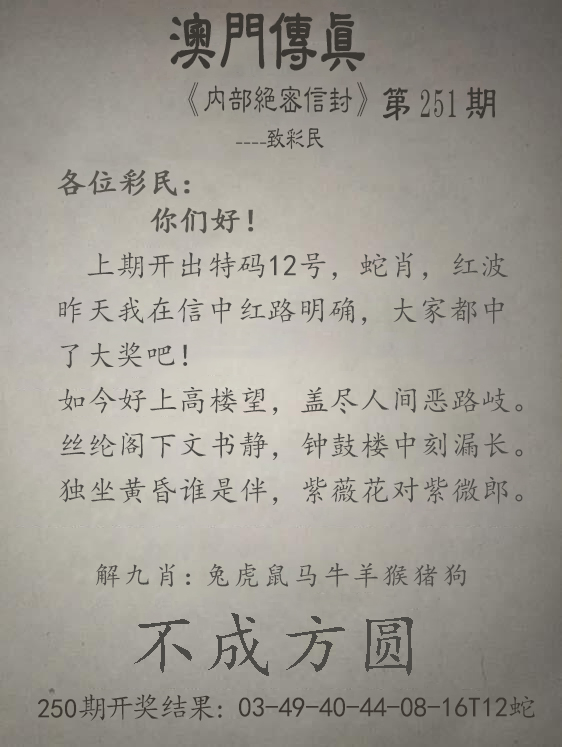 澳門傳眞
《内部絕密信封》第251期
----致彩民
各位彩民：
你们好！
上期开出特码12号，蛇肖，红波
昨天我在信中红路明确，大家都中
了大奖吧！
如今好上高楼望，盖尽人间恶路岐。
丝纶阁下文书静，钟鼓楼中刻漏长。
独坐黄昏谁是伴，紫薇花对紫微郎。
解九肖：兔虎鼠马牛羊猴猪狗
不成方圆
250期开奖结果：03-49-40-44-08-16T12蛇